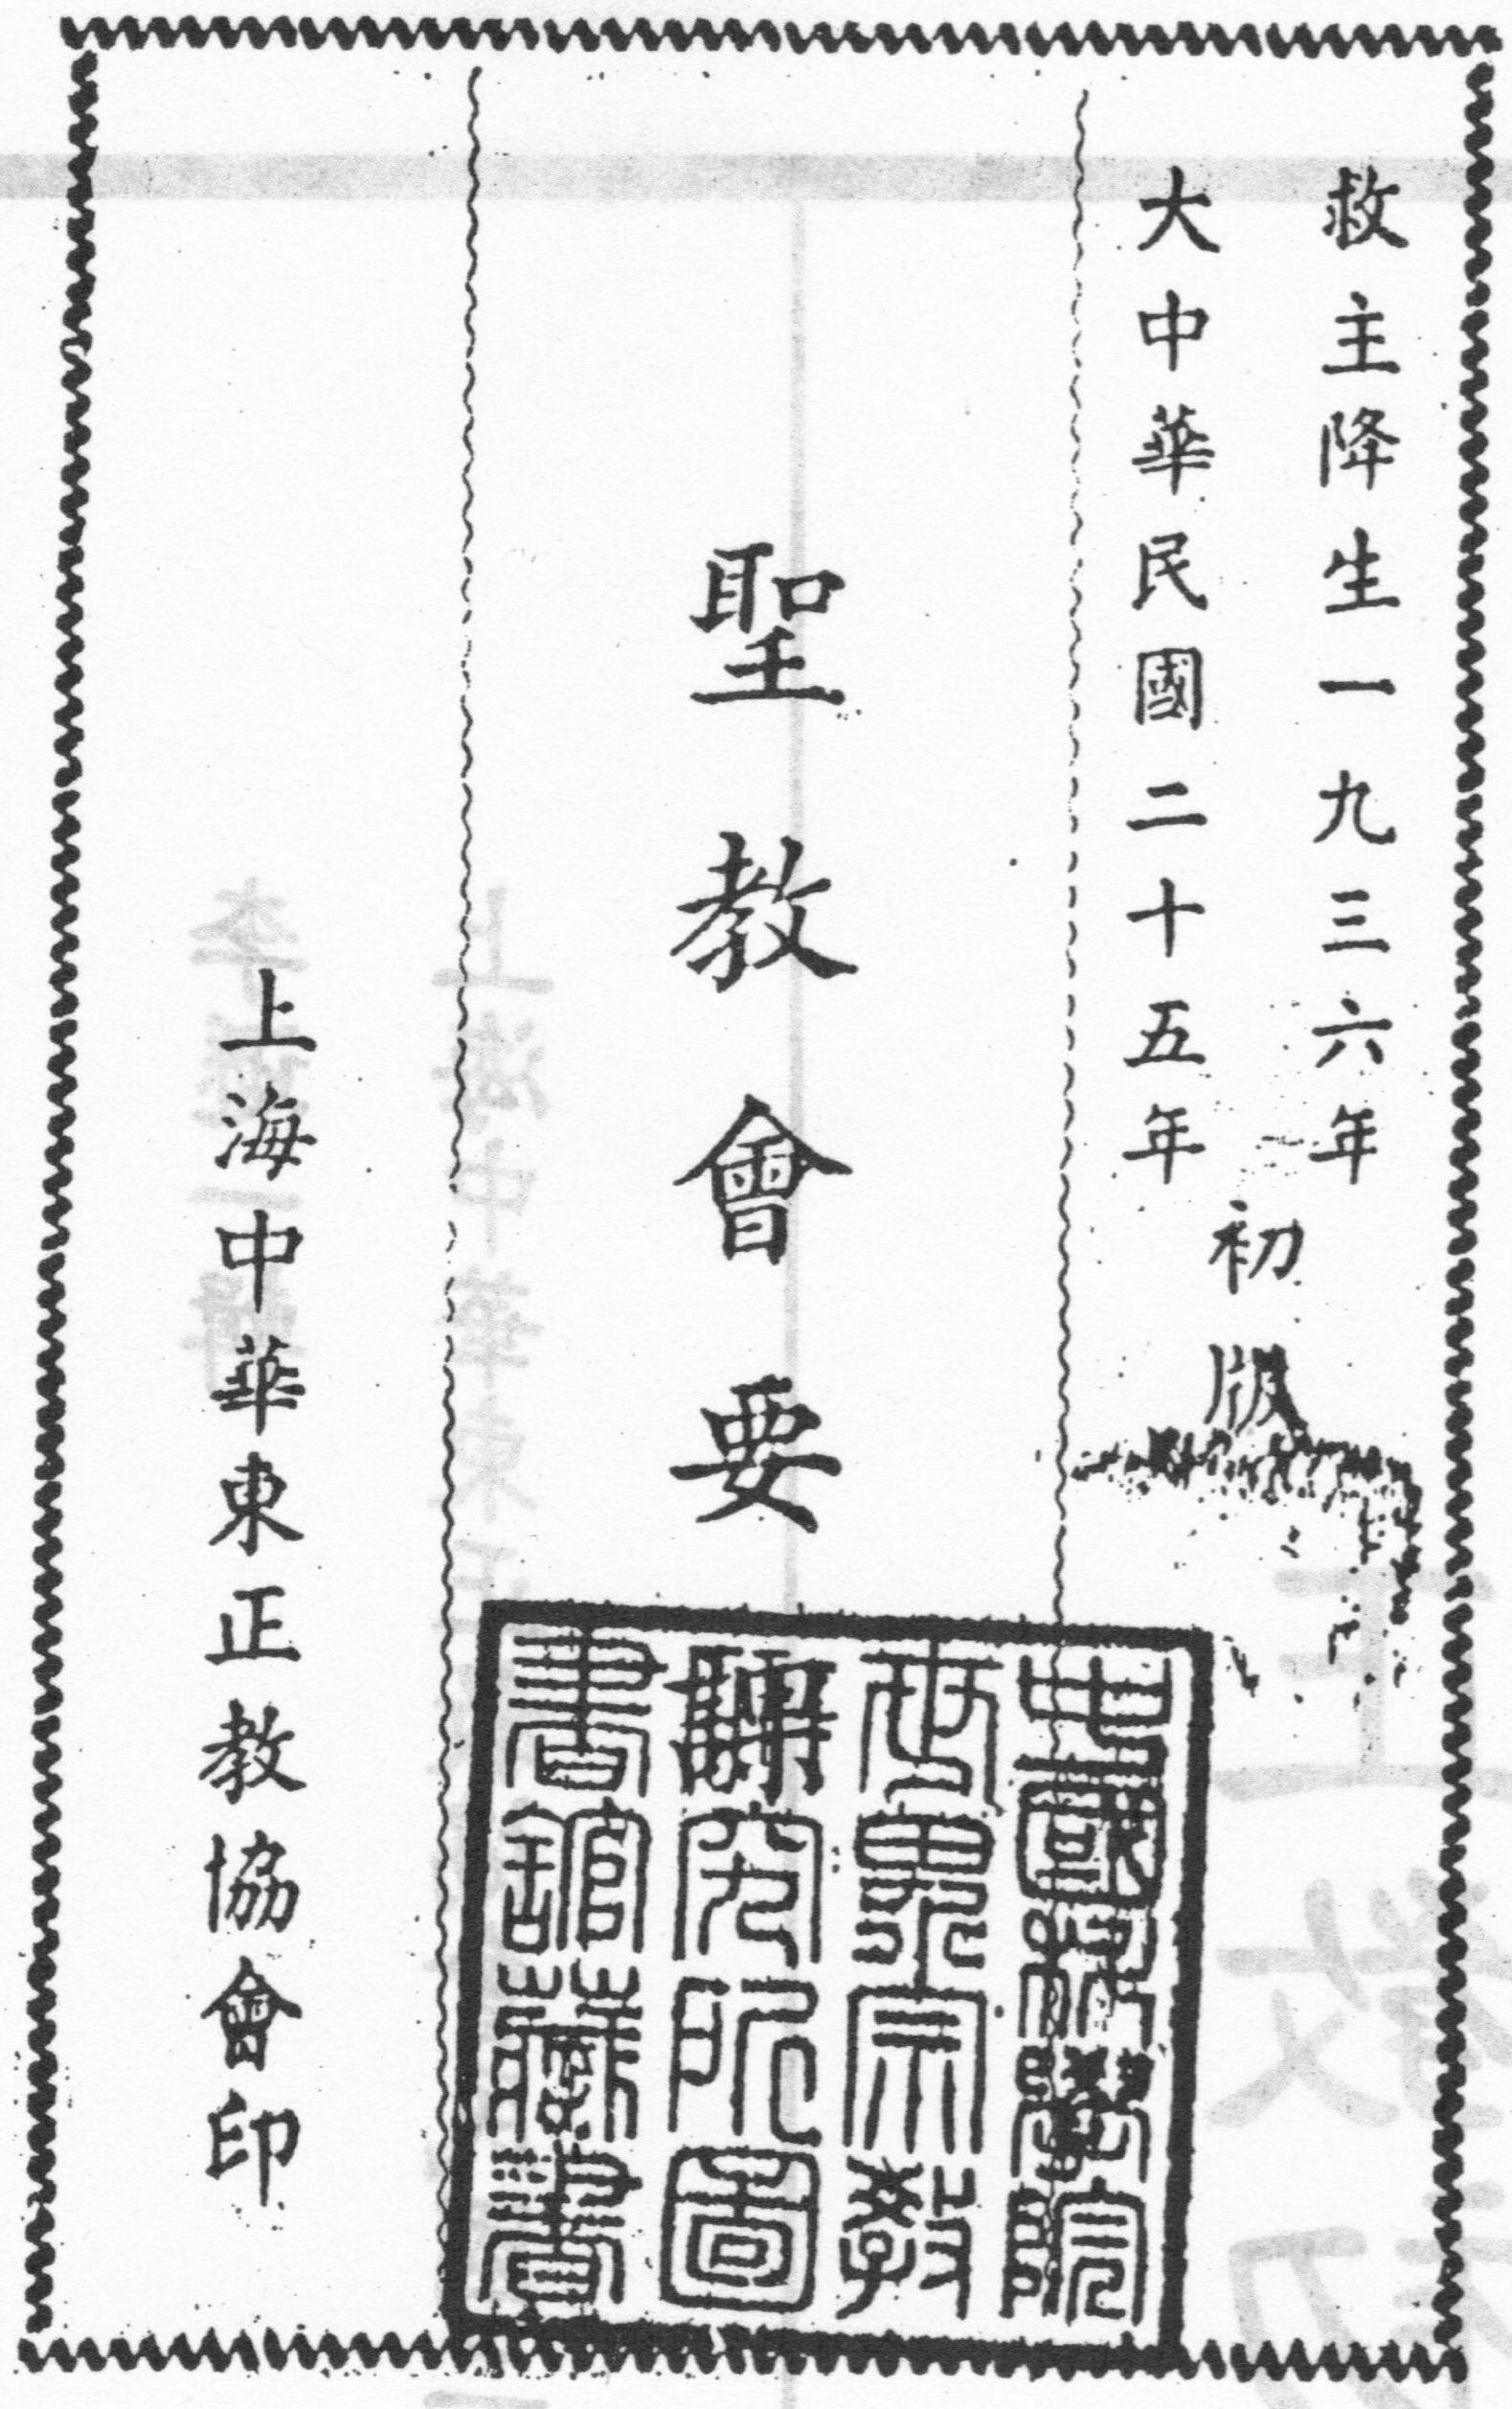 救主降生一九三六年
大中華民國二十五年
初版
聖教會要
上海中華東正教協會印
中國科學院
世界宗教
研究所圖
書館藏書